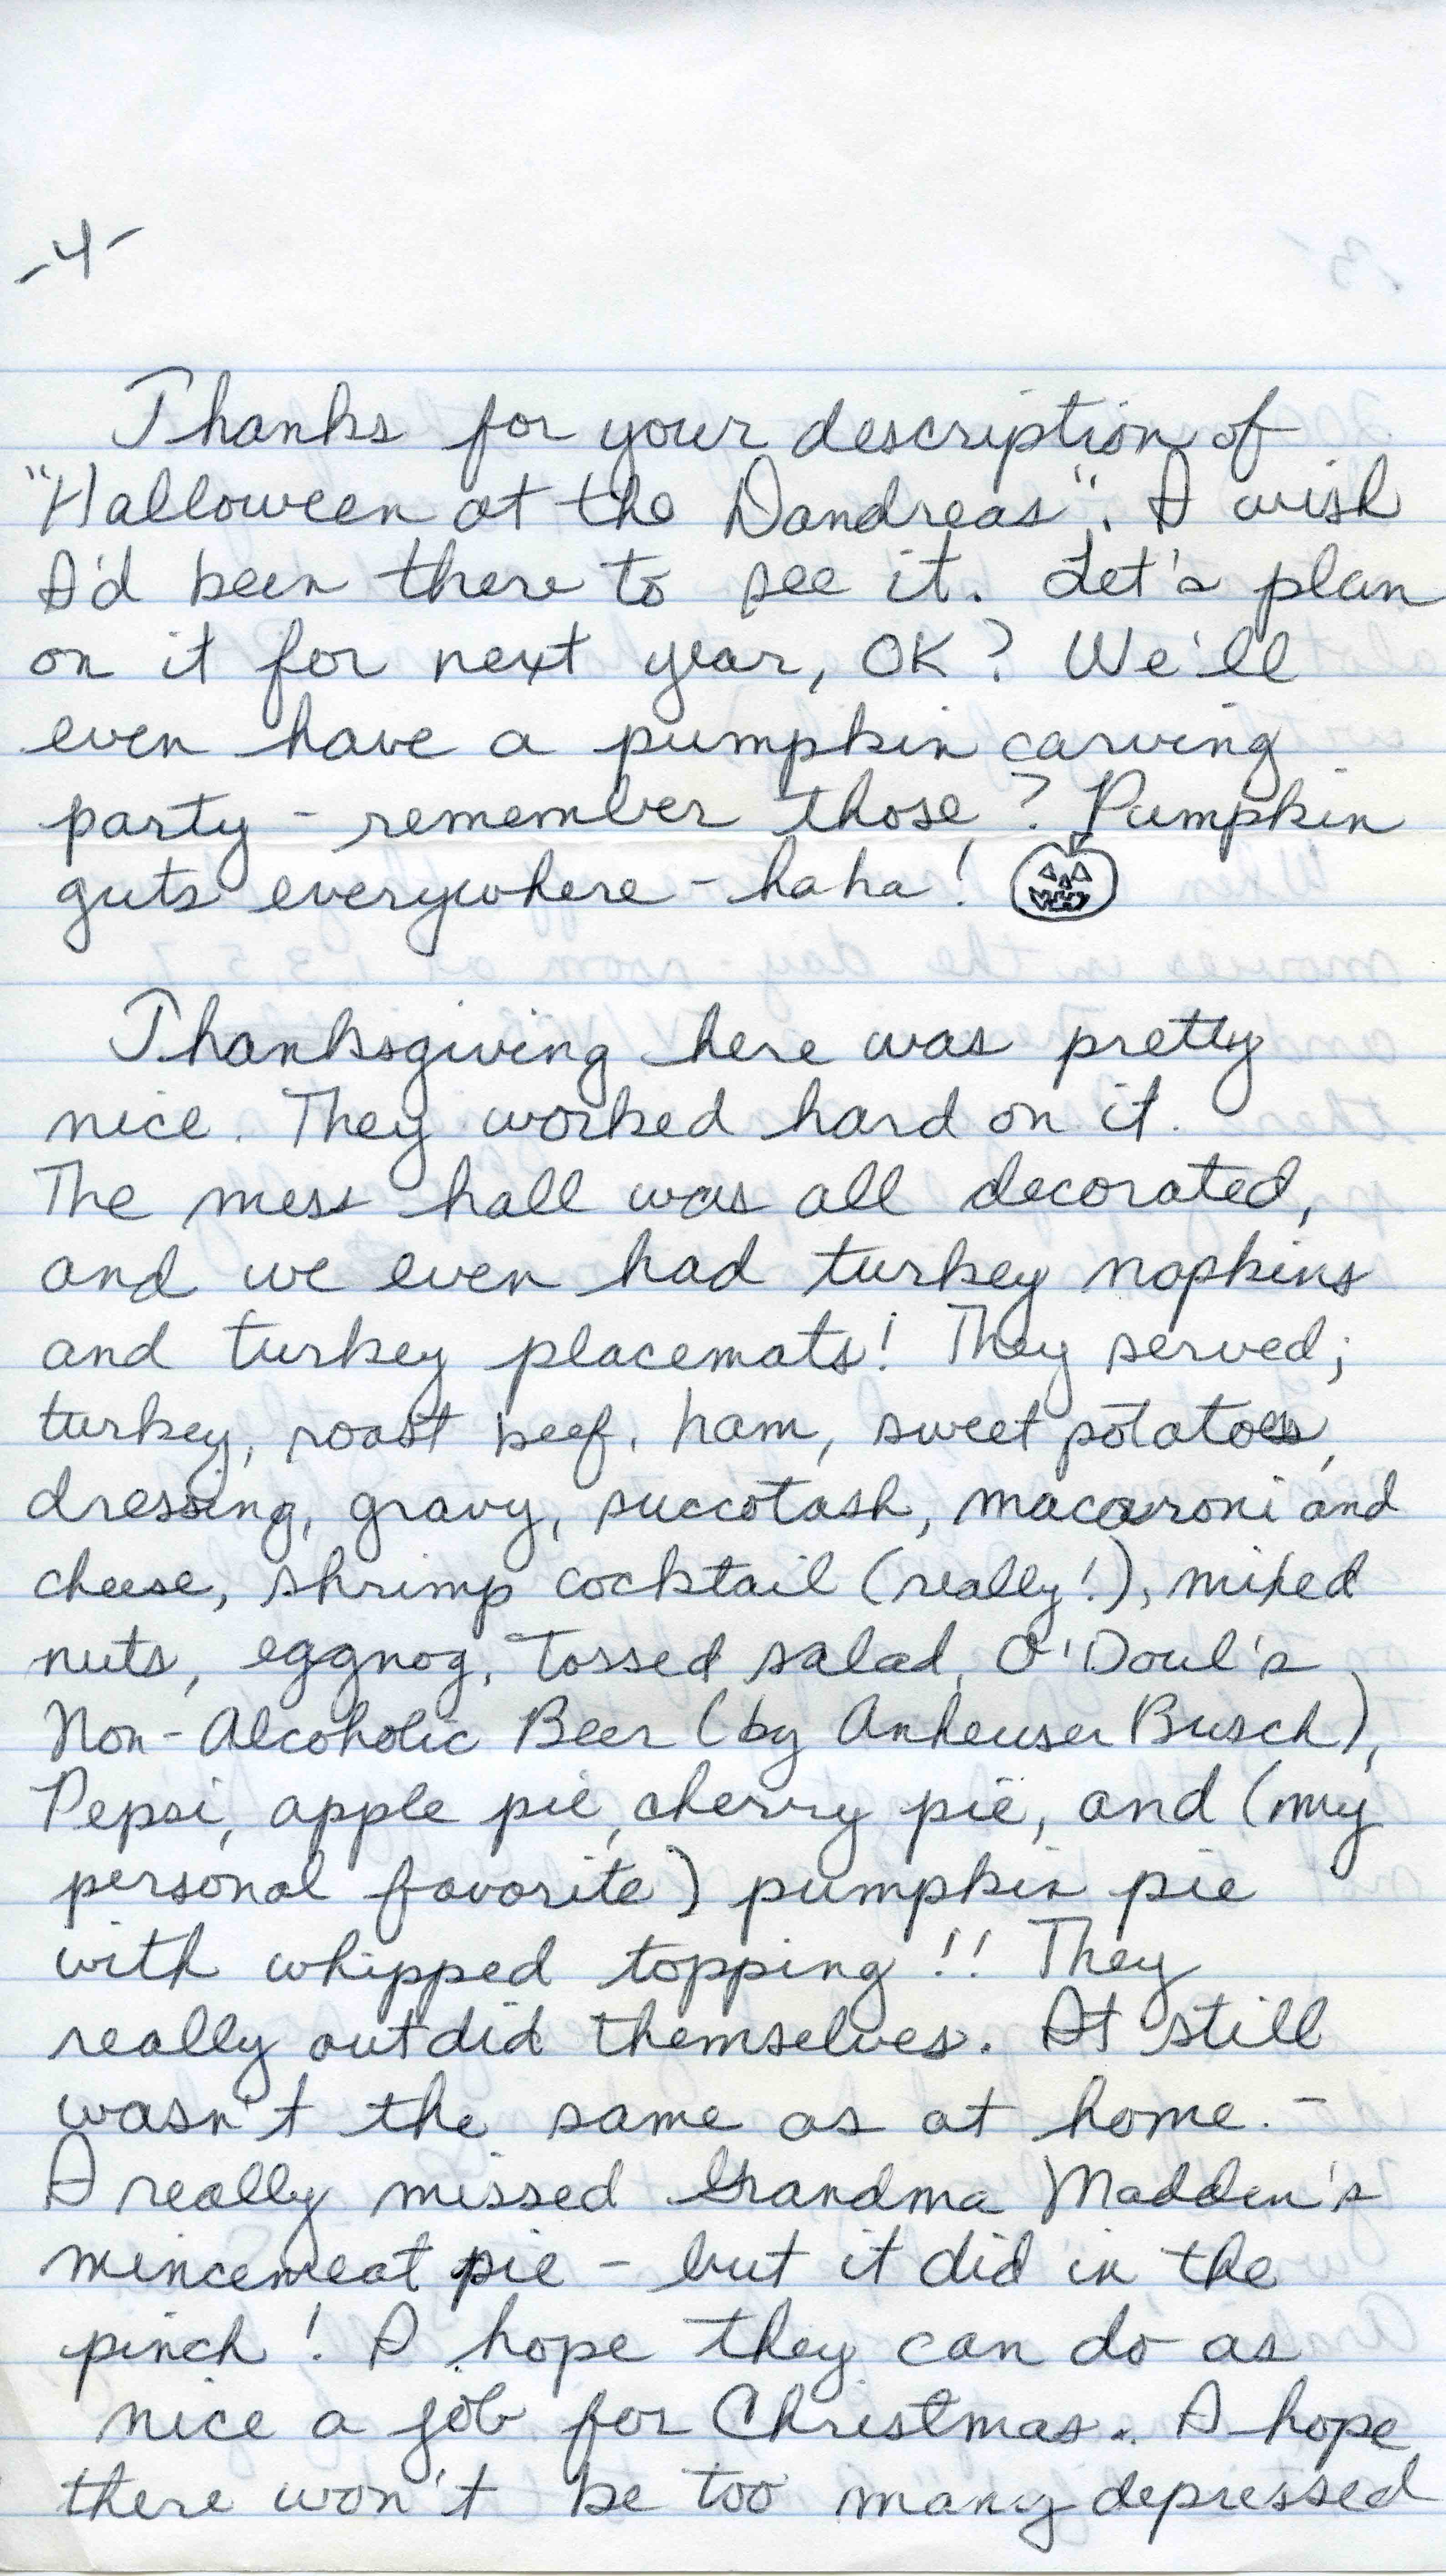 -4-
Thanks for your description of
"Halloween at the Dandreas". I wish
I'd been there to see it. Let's plan
on it for next year, OK? We'll
even have a pumpkin carving
party - remember those? Pumpkin
guts everywhere - haha!
Thanksgiving here was pretty
nice. They worked hard on it.
The mess hall was all decorated,
and we even had turkey napkins
and turkey placemats! They served;
turkey, roast beef, ham, sweet potatoes,
dressing, gravy, succotash, macaroni and
cheese, shrimp cocktail (really!), mixed
nuts, eggnog, tossed salad, O'Doul's
Non-Alcoholic Beer (by Anheuser Busch),
Pepsi, apple pie, cherry pie, and (my
personal favorite) pumpkin pie
with whipped topping!! They
really outdid themselves. It still
wasn't the same as at home. -
I really missed Grandma Madden's
mincemeat pie - but it did in the
pinch! I hope they can do as
nice a job for Christmas. I hope
there won't be too many depressed